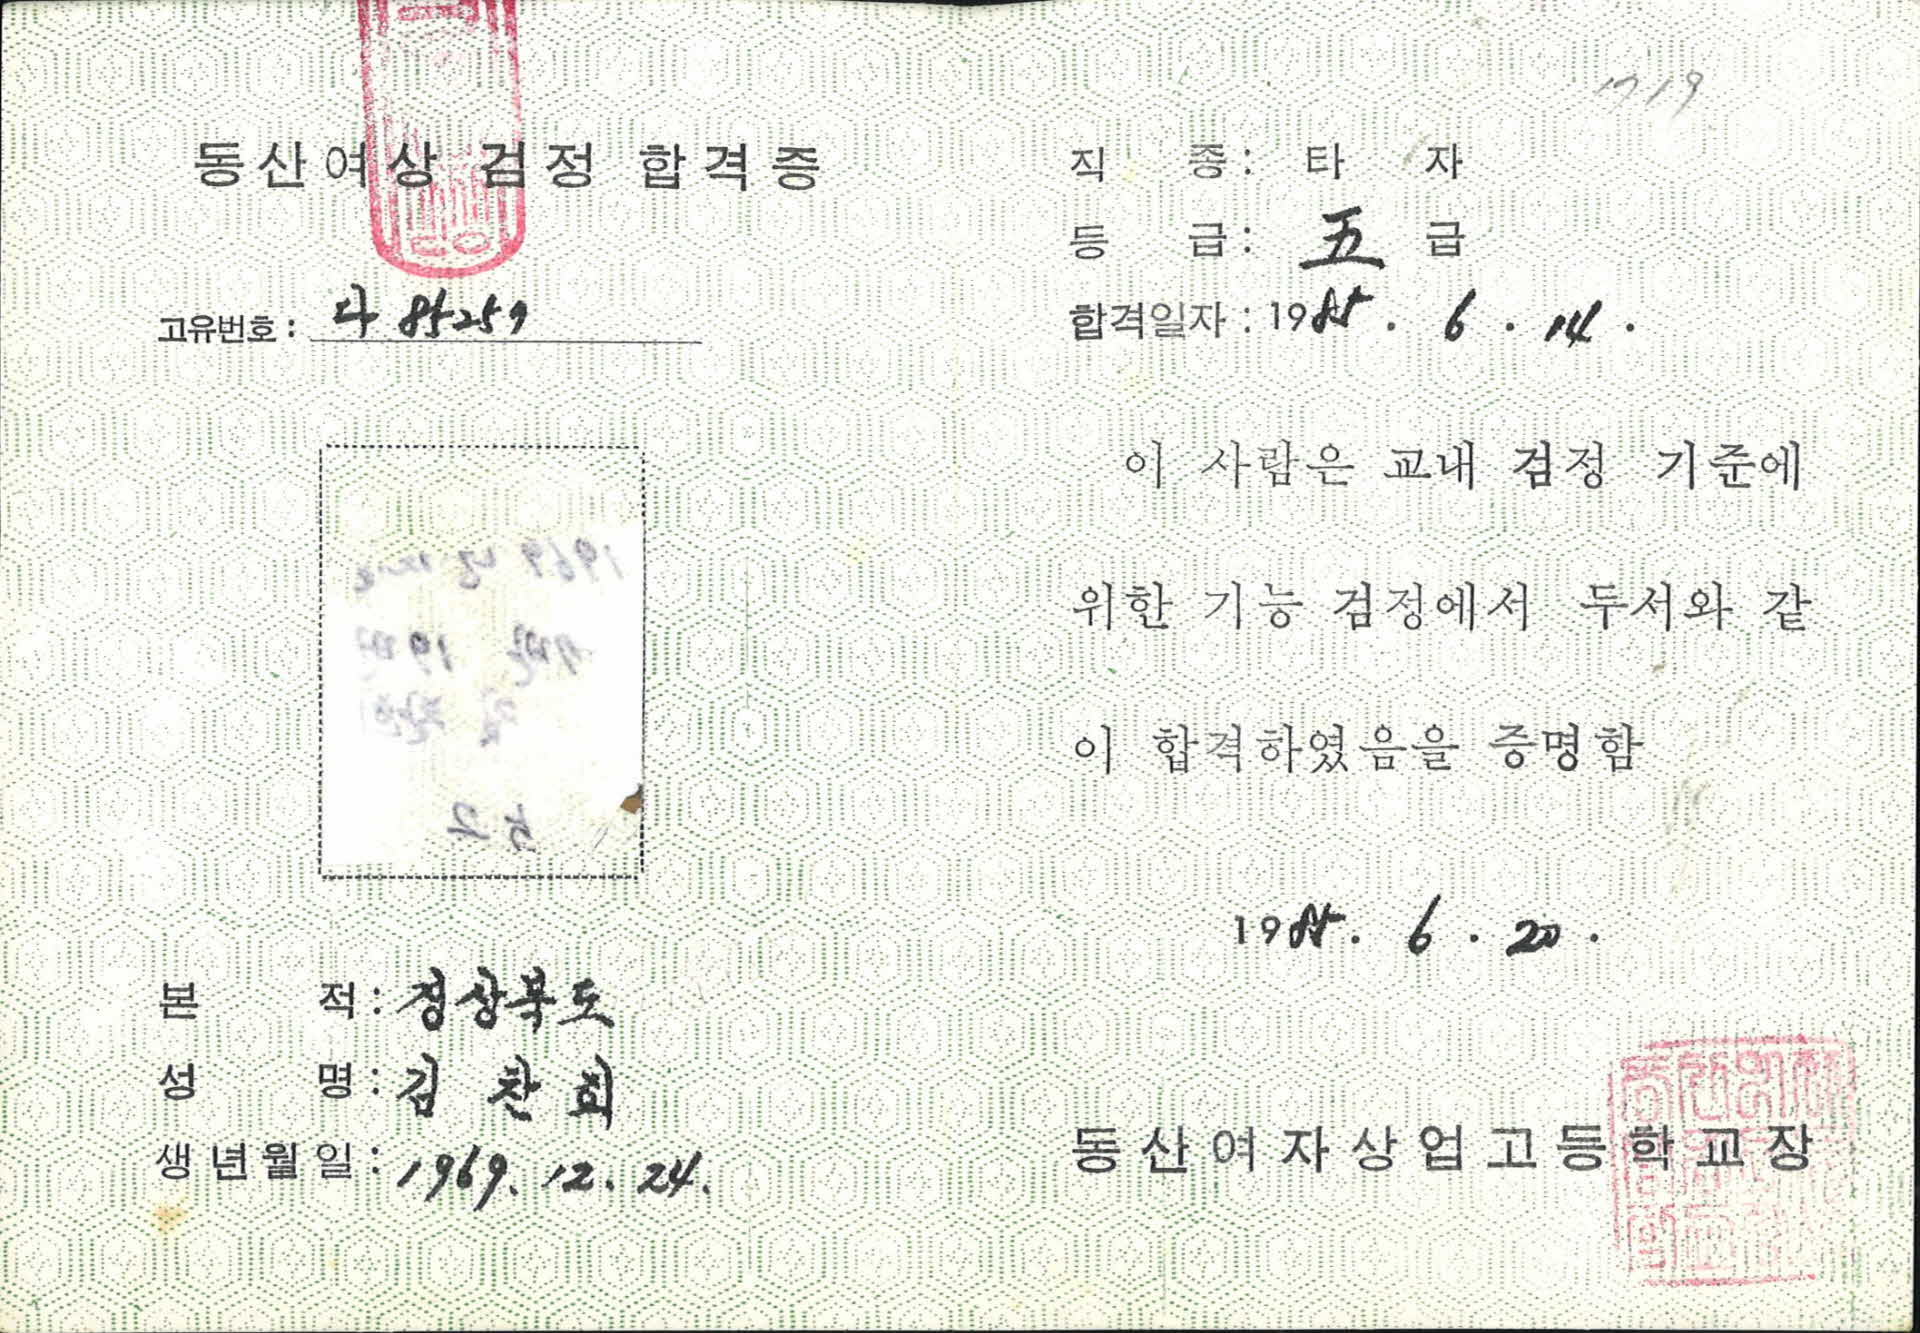 동산여상 검정 합격증
고유번호 : 다 85259
본 적 : 경상북도
성 명 : 김찬희
생년월일 : 1969. 12. 24.
1719
직 종 : 타 자
등 급 : 五 급
합격일자 : 1985 . 6 . 14 .
이 사람은 교내 검정 기준에
위한 기능 검정에서 두서와 같
이 합격하였음을 증명함
1985 . 6 . 20 .
동산여자상업고등학교장